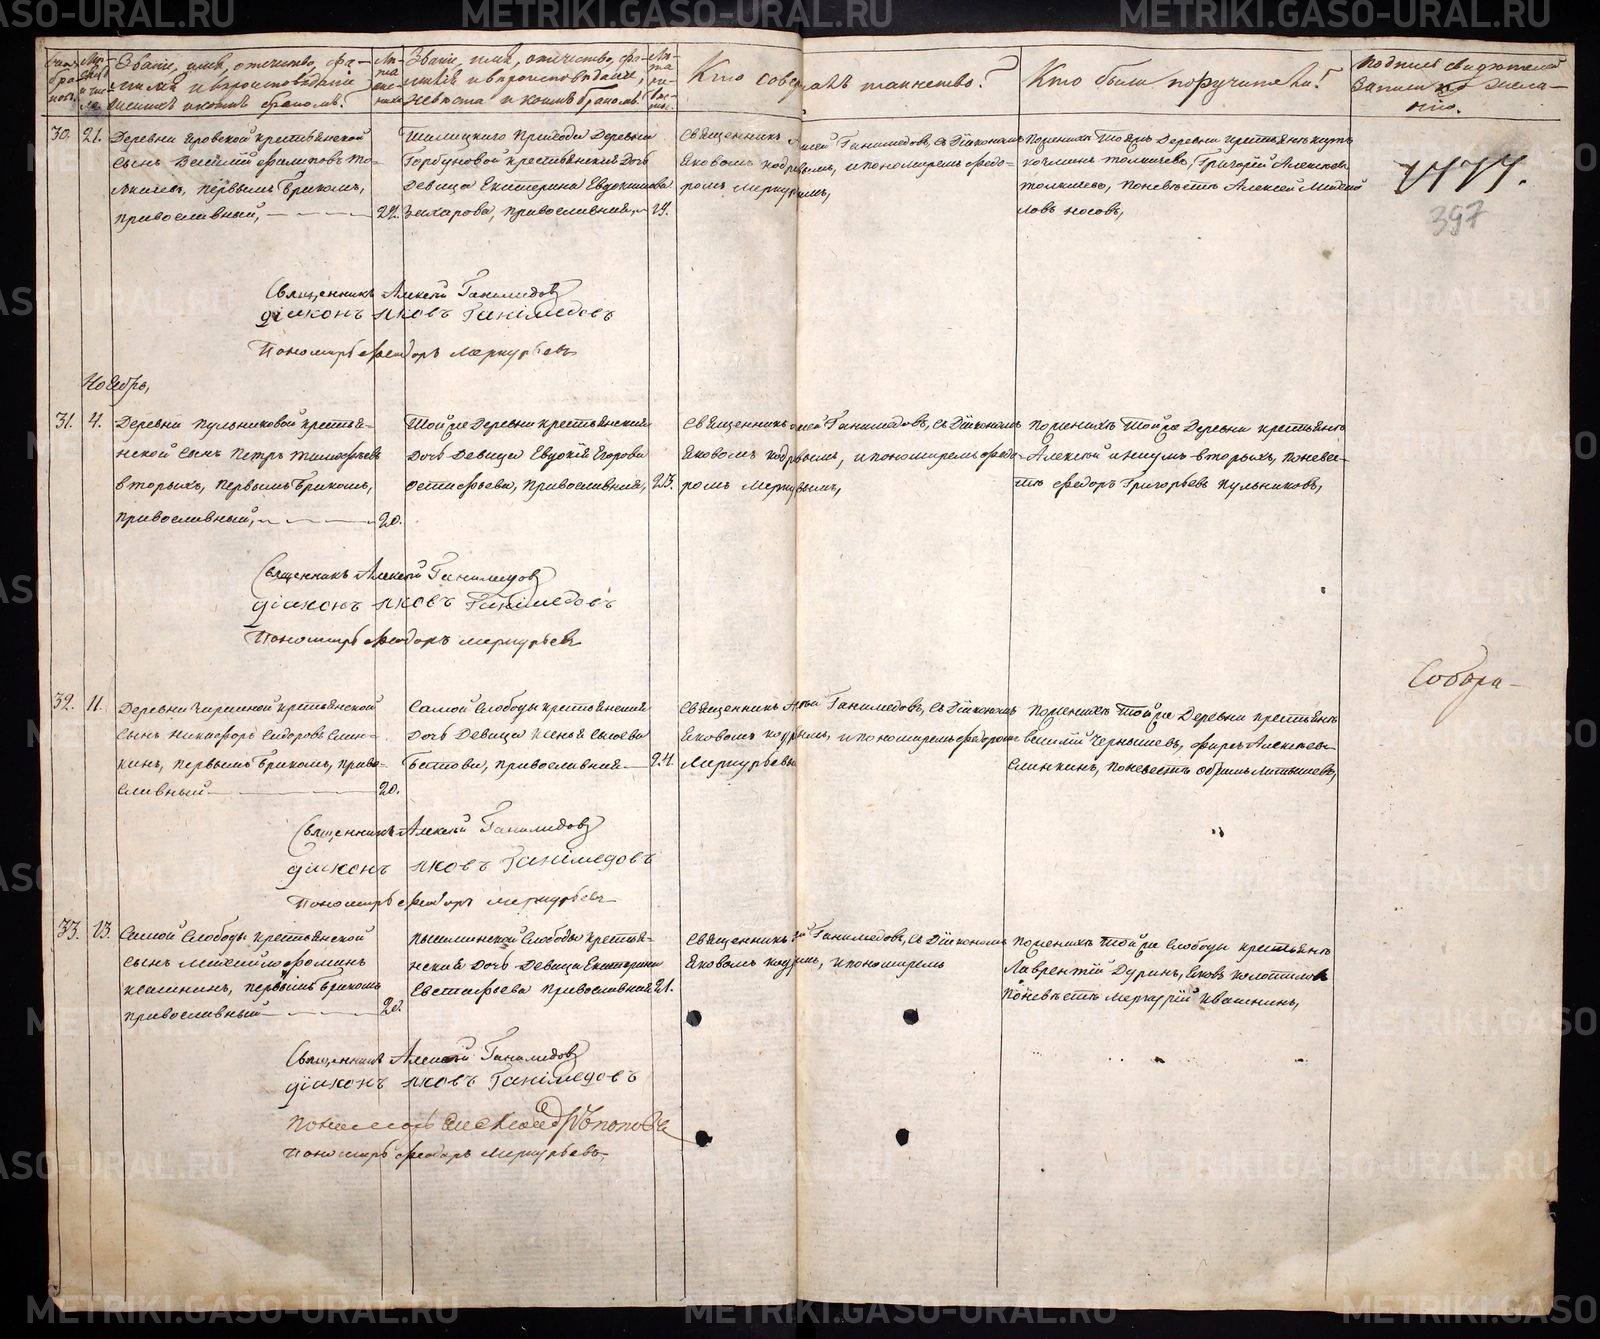 METRIKI.GASO-URAL.RU
Званіе, имя, отечество, фа-
милія и вѣроисповѣданіе
жениха и коимъ бракомъ?
Званіе, имя, отечество, фа-
милія и вѣроисповѣданіе,
невѣста и коимъ бракомъ?
Кто совершалъ таинство?
Кто были поручители?
Подпись свидѣтелей
записи по жела-
нію.
30. 21.
Деревни крестьянской
сынъ Василій Филиповъ То-
первымъ бракомъ,
православный,
прихода Деревни
Горбуновой крестьянская дочь
Девица Екатерина Евдокимова
Захарова, православная,
Священникъ Алексей Ганимедовъ, съ Діакономъ
Яковомъ и пономаремъ Федо-
ромъ Меркурьевымъ,
по женихѣ тоя же Деревни крестьянѣ
Григорій Алексеевъ
по невѣстѣ Алексей
Носовъ,
397
Священникъ Алексѣй Ганимедовъ
Діаконъ Яковъ Ганімедовъ
Пономарь Феодоръ Меркурьевъ
Ноябрь,
31. 4.
Деревни Пульниковой крестья-
нской сынъ Петръ Тимофѣевъ
Вторыхъ, первымъ бракомъ,
православный,
20.
Той же Деревни крестьянская
дочь Девица Евдокія Егорова
Остафьева, православная,
23.
Священникъ Алексей Ганимедовъ, съ Діакономъ
Яковомъ и пономаремъ Федо-
ромъ Меркурьевымъ,
по женихѣ той же Деревни крестьянѣ
Алексей и Наумъ Вторыхъ, по неве-
стѣ Федоръ Григорьевъ Пульниковъ,
Священникъ Алексѣй Ганимедовъ
Діаконъ Яковъ Ганімедовъ
Пономарь Феодоръ Меркурьевъ
Собора-
32. 11.
Деревни крестьянской
сынъ Никифоръ Сидоровъ Слин-
кинъ, первымъ бракомъ, право-
славный
20.
Самой Слободы крестьянская
дочь Девица Сысоева
Батова, православная
24.
Священникъ Алексей Ганимедовъ, съ Діакономъ
Яковомъ и пономаремъ Федоромъ
Меркурьевымъ
по женихѣ той же Деревни крестьянѣ
Василій Чернышевъ, Фирсъ Алексеевъ
Слинкинъ, по невестѣ Латышевъ,
Священникъ Алексѣй Ганимедовъ
Діаконъ Яковъ Ганімедовъ
Пономарь Феодоръ Меркурьевъ
33. 13.
Самой Слободы крестьянской
сынъ Михайло Фоминъ
Квашнинъ, первымъ бракомъ
православный
Пышминской Слободы крестья-
нская дочь Девица Екатерина
Евстафьева православная 21.
Священникъ Алексей Ганимедовъ, съ Діакономъ
Яковомъ и пономаремъ
по женихѣ той же Слободы крестьянѣ
Лаврентій Дуринъ, Яковъ Колотиловъ
по невѣстѣ Меркурій Квашнинъ,
Священникъ Алексѣй Ганимедовъ
Діаконъ Яковъ Ганімедовъ
Пономарь Александръ Поповъ
Пономарь Феодоръ Меркурьевъ